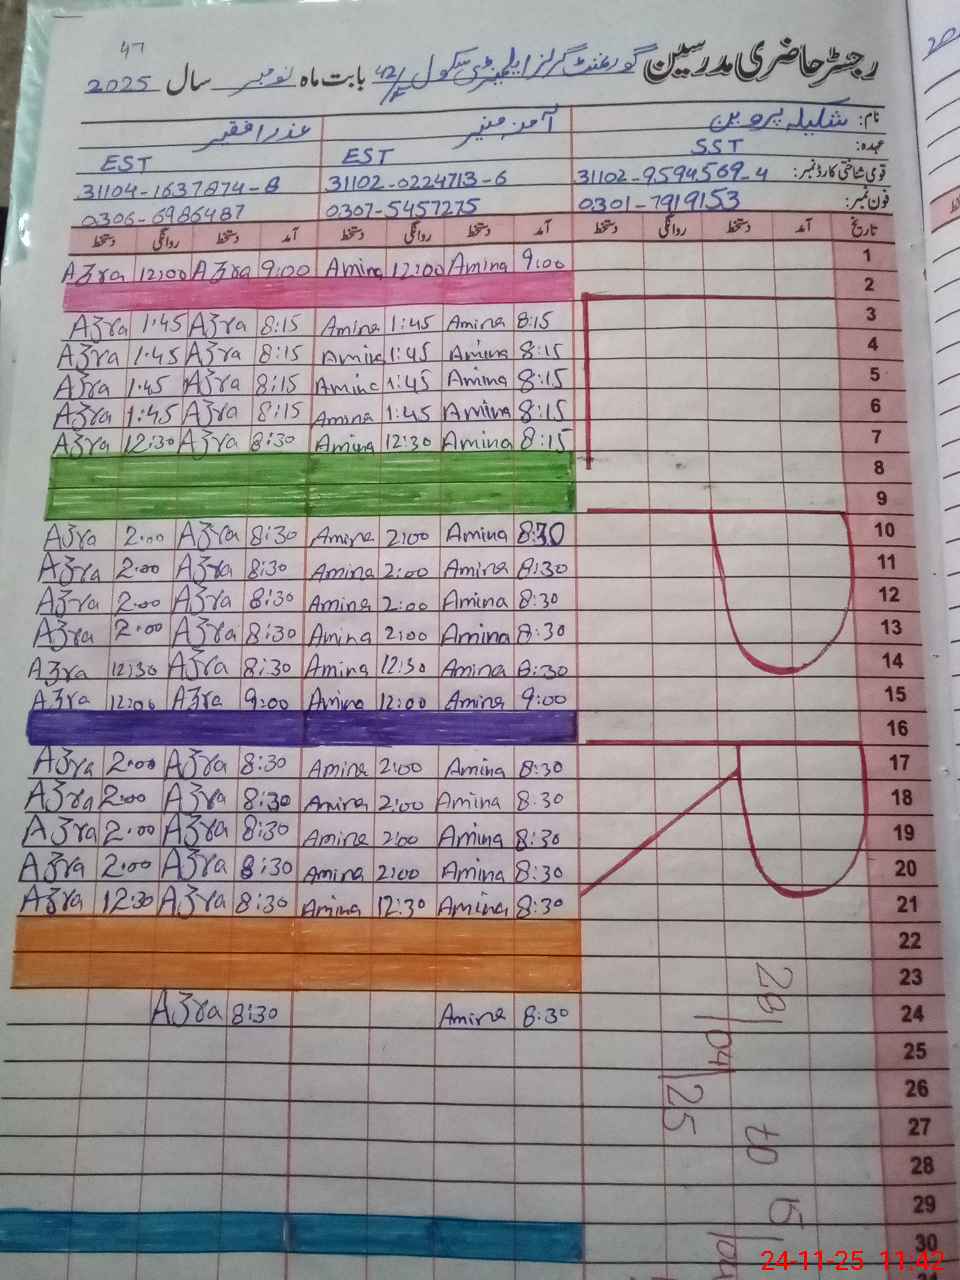 47
رجسٹر حاضری مدرسین گورنمنٹ گرلز ایلیمنٹری سکول 42/ بابت ماہ نومبر سال 2025
نام: شکیلہ پروین آمنہ منیر عذرا فقیر
عہدہ: SST EST EST
قومی شناختی کارڈ نمبر: 31102-9594569-4 31102-0224713-6 31104-1637874-8
فون نمبر: 0301-7919153 0307-5457275 0306-6986487
تاریخ آمد دستخط روانگی دستخط آمد دستخط روانگی دستخط آمد دستخط روانگی دستخط
Azra 12:00 Azra 9:00 Amina 12:00 Amina 9:00 1
2
Azra 1:45 Azra 8:15 Amina 1:45 Amina 8:15 3
Azra 1:45 Azra 8:15 Amina 1:45 Amina 8:15 4
Azra 1:45 Azra 8:15 Amina 1:45 Amina 8:15 5
Azra 1:45 Azra 8:15 Amina 1:45 Amina 8:15 6
Azra 12:30 Azra 8:30 Amina 12:30 Amina 8:15 7
8
9
Azra 2:00 Azra 8:30 Amina 2:00 Amina 8:30 10
Azra 2:00 Azra 8:30 Amina 2:00 Amina 8:30 11
Azra 2:00 Azra 8:30 Amina 2:00 Amina 8:30 12
Azra 2:00 Azra 8:30 Amina 2:00 Amina 8:30 13
Azra 12:30 Azra 8:30 Amina 12:30 Amina 8:30 14
Azra 12:00 Azra 9:00 Amina 12:00 Amina 9:00 15
16
Azra 2:00 Azra 8:30 Amina 2:00 Amina 8:30 17
Azra 2:00 Azra 8:30 Amina 2:00 Amina 8:30 18
Azra 2:00 Azra 8:30 Amina 2:00 Amina 8:30 19
Azra 2:00 Azra 8:30 Amina 2:00 Amina 8:30 20
Azra 12:30 Azra 8:30 Amina 12:30 Amina 8:30 21
22
23
Azra 8:30 Amina 8:30 24
25
26
27
28
29
30
28/04/25
to
24-11-25 11:42